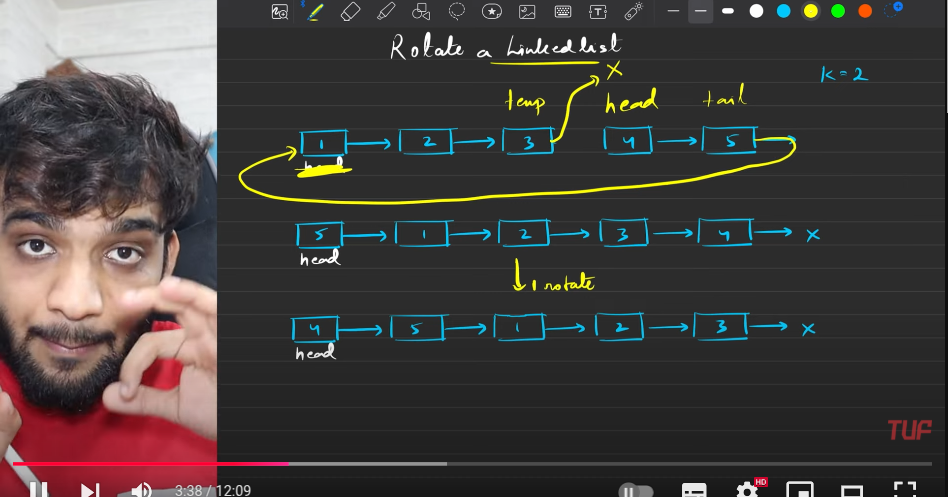 Rotate a Linkedlist
X
K=2
temp head tail
1 2 3 4 5
head
5 1 2 3 4 X
head
1 rotate
4 5 1 2 3 X
head
TUF
3:38 / 12:09
HD